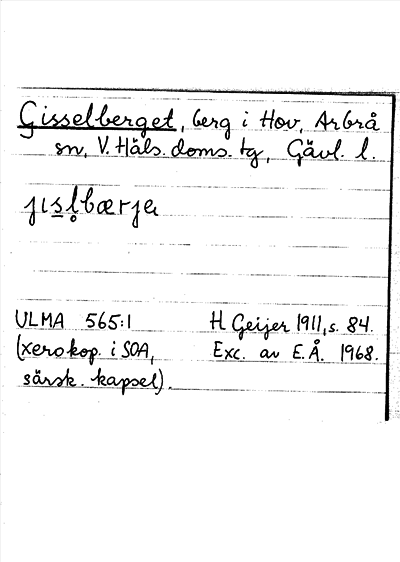 Gisselberget, berg i Hov, Arbrå
sn, V. Häls. doms. tg, Gävl. l.
jɪs̲l̥bærjɐ
ULMA 565:1 H Geijer 1911, s. 84.
(xerokop. i SOA, Exc. av E.Å. 1968.
särsk. kapsel).